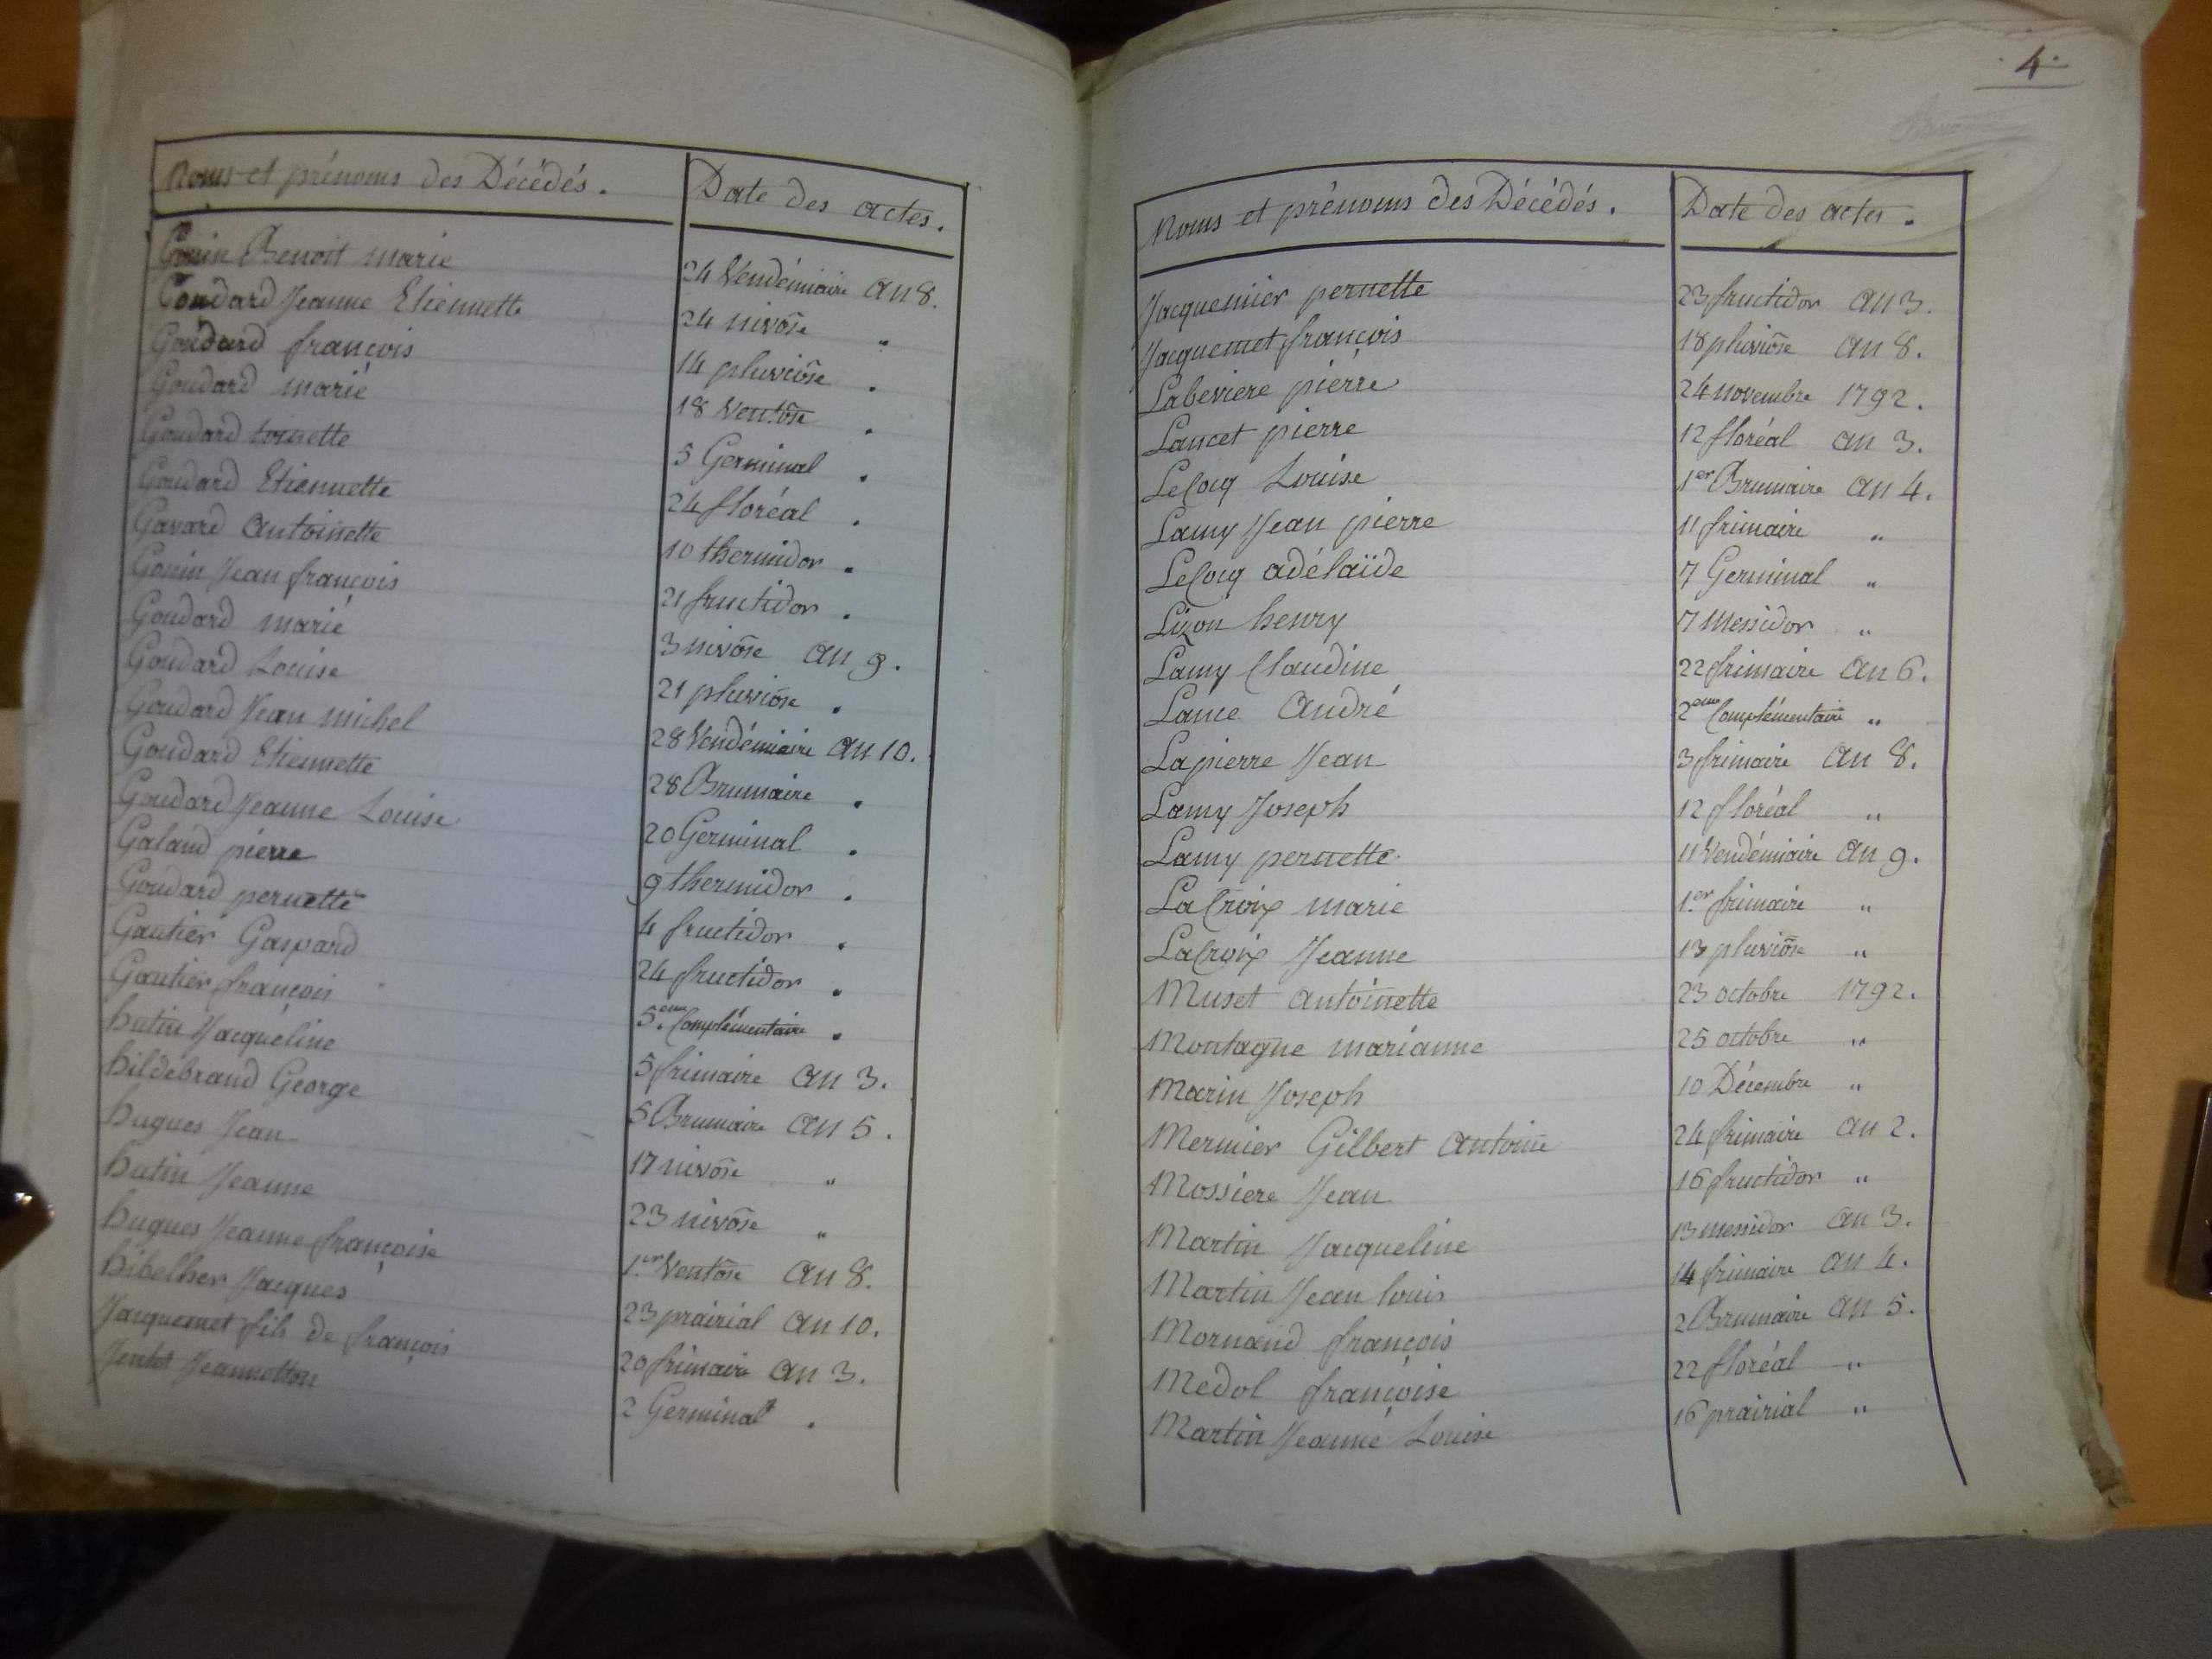 Noms et prénoms des Décédés. Date des actes.
Gonin Benoit marie 24 Vendémiaire an 8.
Goudard Jeanne Etiennette 24 nivôse "
Goudard françois 14 pluviôse .
Goudard marie 18 Ventôse .
Goudard tonette 5 Germinal .
Goudard Etiennette 24 floréal .
Gavard antoinette 10 thermidor .
Gonin Jean françois 21 fructidor .
Goudard marie 3 nivôse an 9.
Goudard Louise 21 pluviôse .
Goudard Jean michel 28 Vendémiaire an 10.
Goudard Etiennette 28 Brumaire .
Goudard Jeanne Louise 20 Germinal .
Galand pierre 9 thermidor .
Goudard pernette 4 fructidor .
Gautier Gaspard 24 fructidor .
Gautier françois 5.eme Complémentaire .
hutin Jacqueline 5 frimaire an 3.
hildebrand George 5 Brumaire an 5.
hugues Jean 17 nivôse "
hutin Jeanne 23 nivôse "
hugues Jeanne françoise 1.er Ventôse an 8.
hibelher Jacques 23 prairial an 10.
Jacquemet fils de françois 20 frimaire an 3.
Jeannetton 2 Germinal .
4.
Noms et prénoms des Décédés. Date des actes.
Jacquemier pernette 23 fructidor an 3.
Jacquemet françois 18 pluviôse an 8.
Labeviere pierre 24 novembre 1792.
Lancet pierre 12 floréal an 3.
LeCoq Louise 1er Brumaire an 4.
Lamy Jean pierre 11 frimaire "
LeCoq adélaïde 7 Germinal "
Lizon henry 7 messidor "
Lamy Claudine 22 frimaire an 6.
Lance andré 2eme Complémentaire "
Lapierre Jean 3 frimaire an 8.
Lamy Joseph 12 floréal "
Lamy pernette 11 Vendémiaire an 9.
LaCroix marie 1.er frimaire "
LaCroix Jeanne 13 pluviôse "
Muset antoinette 23 octobre 1792.
Montagne marianne 25 octobre "
Marin Joseph 10 Décembre "
Mermier Gilbert antoine 24 frimaire an 2.
Mossiere Jean 16 fructidor "
Martin Jacqueline 13 messidor an 3.
Martin Jean louis 14 frimaire an 4.
Mornand françois 2 Brumaire an 5.
Medol françoise 22 floréal "
Martin Jeanne Louise 16 prairial "